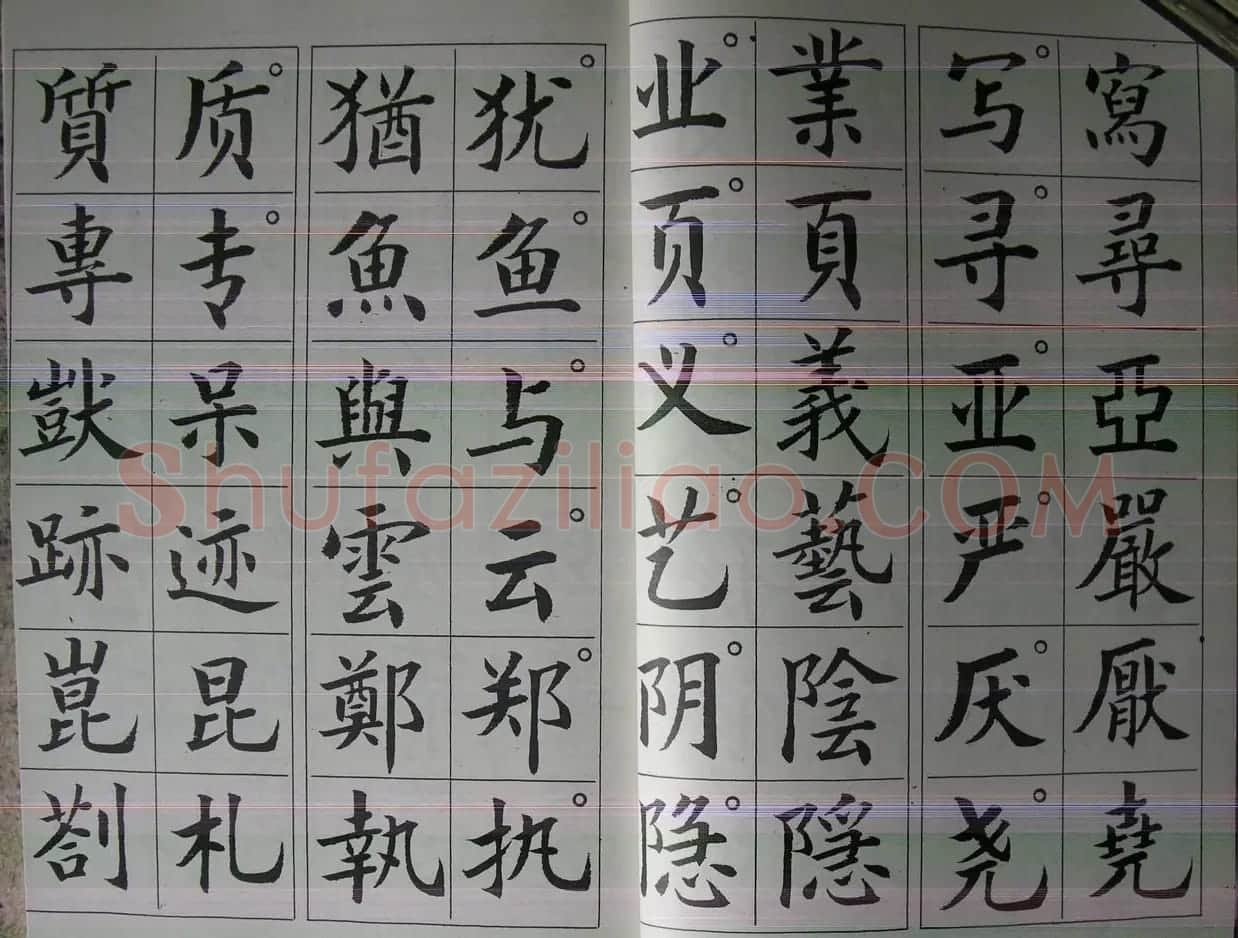 寫尋亞嚴厭堯
写寻亚严厌尧
業頁義藝陰隱
业页义艺阴隐
犹鱼与云郑执
猶魚與雲鄭執
质专呆迹昆札
質專獃跡崑剳
Shufaziliao.COM